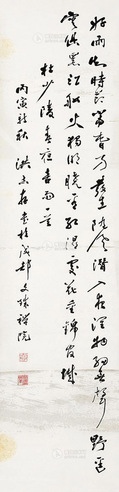 好雨知時節當春乃發生隨風潛入夜潤物細無聲野逕
雲俱黑江船火獨明曉看紅濕處花重錦官城
杜少陵春夜喜雨一首
丙寅新秋洪志存書於成都文殊禪院